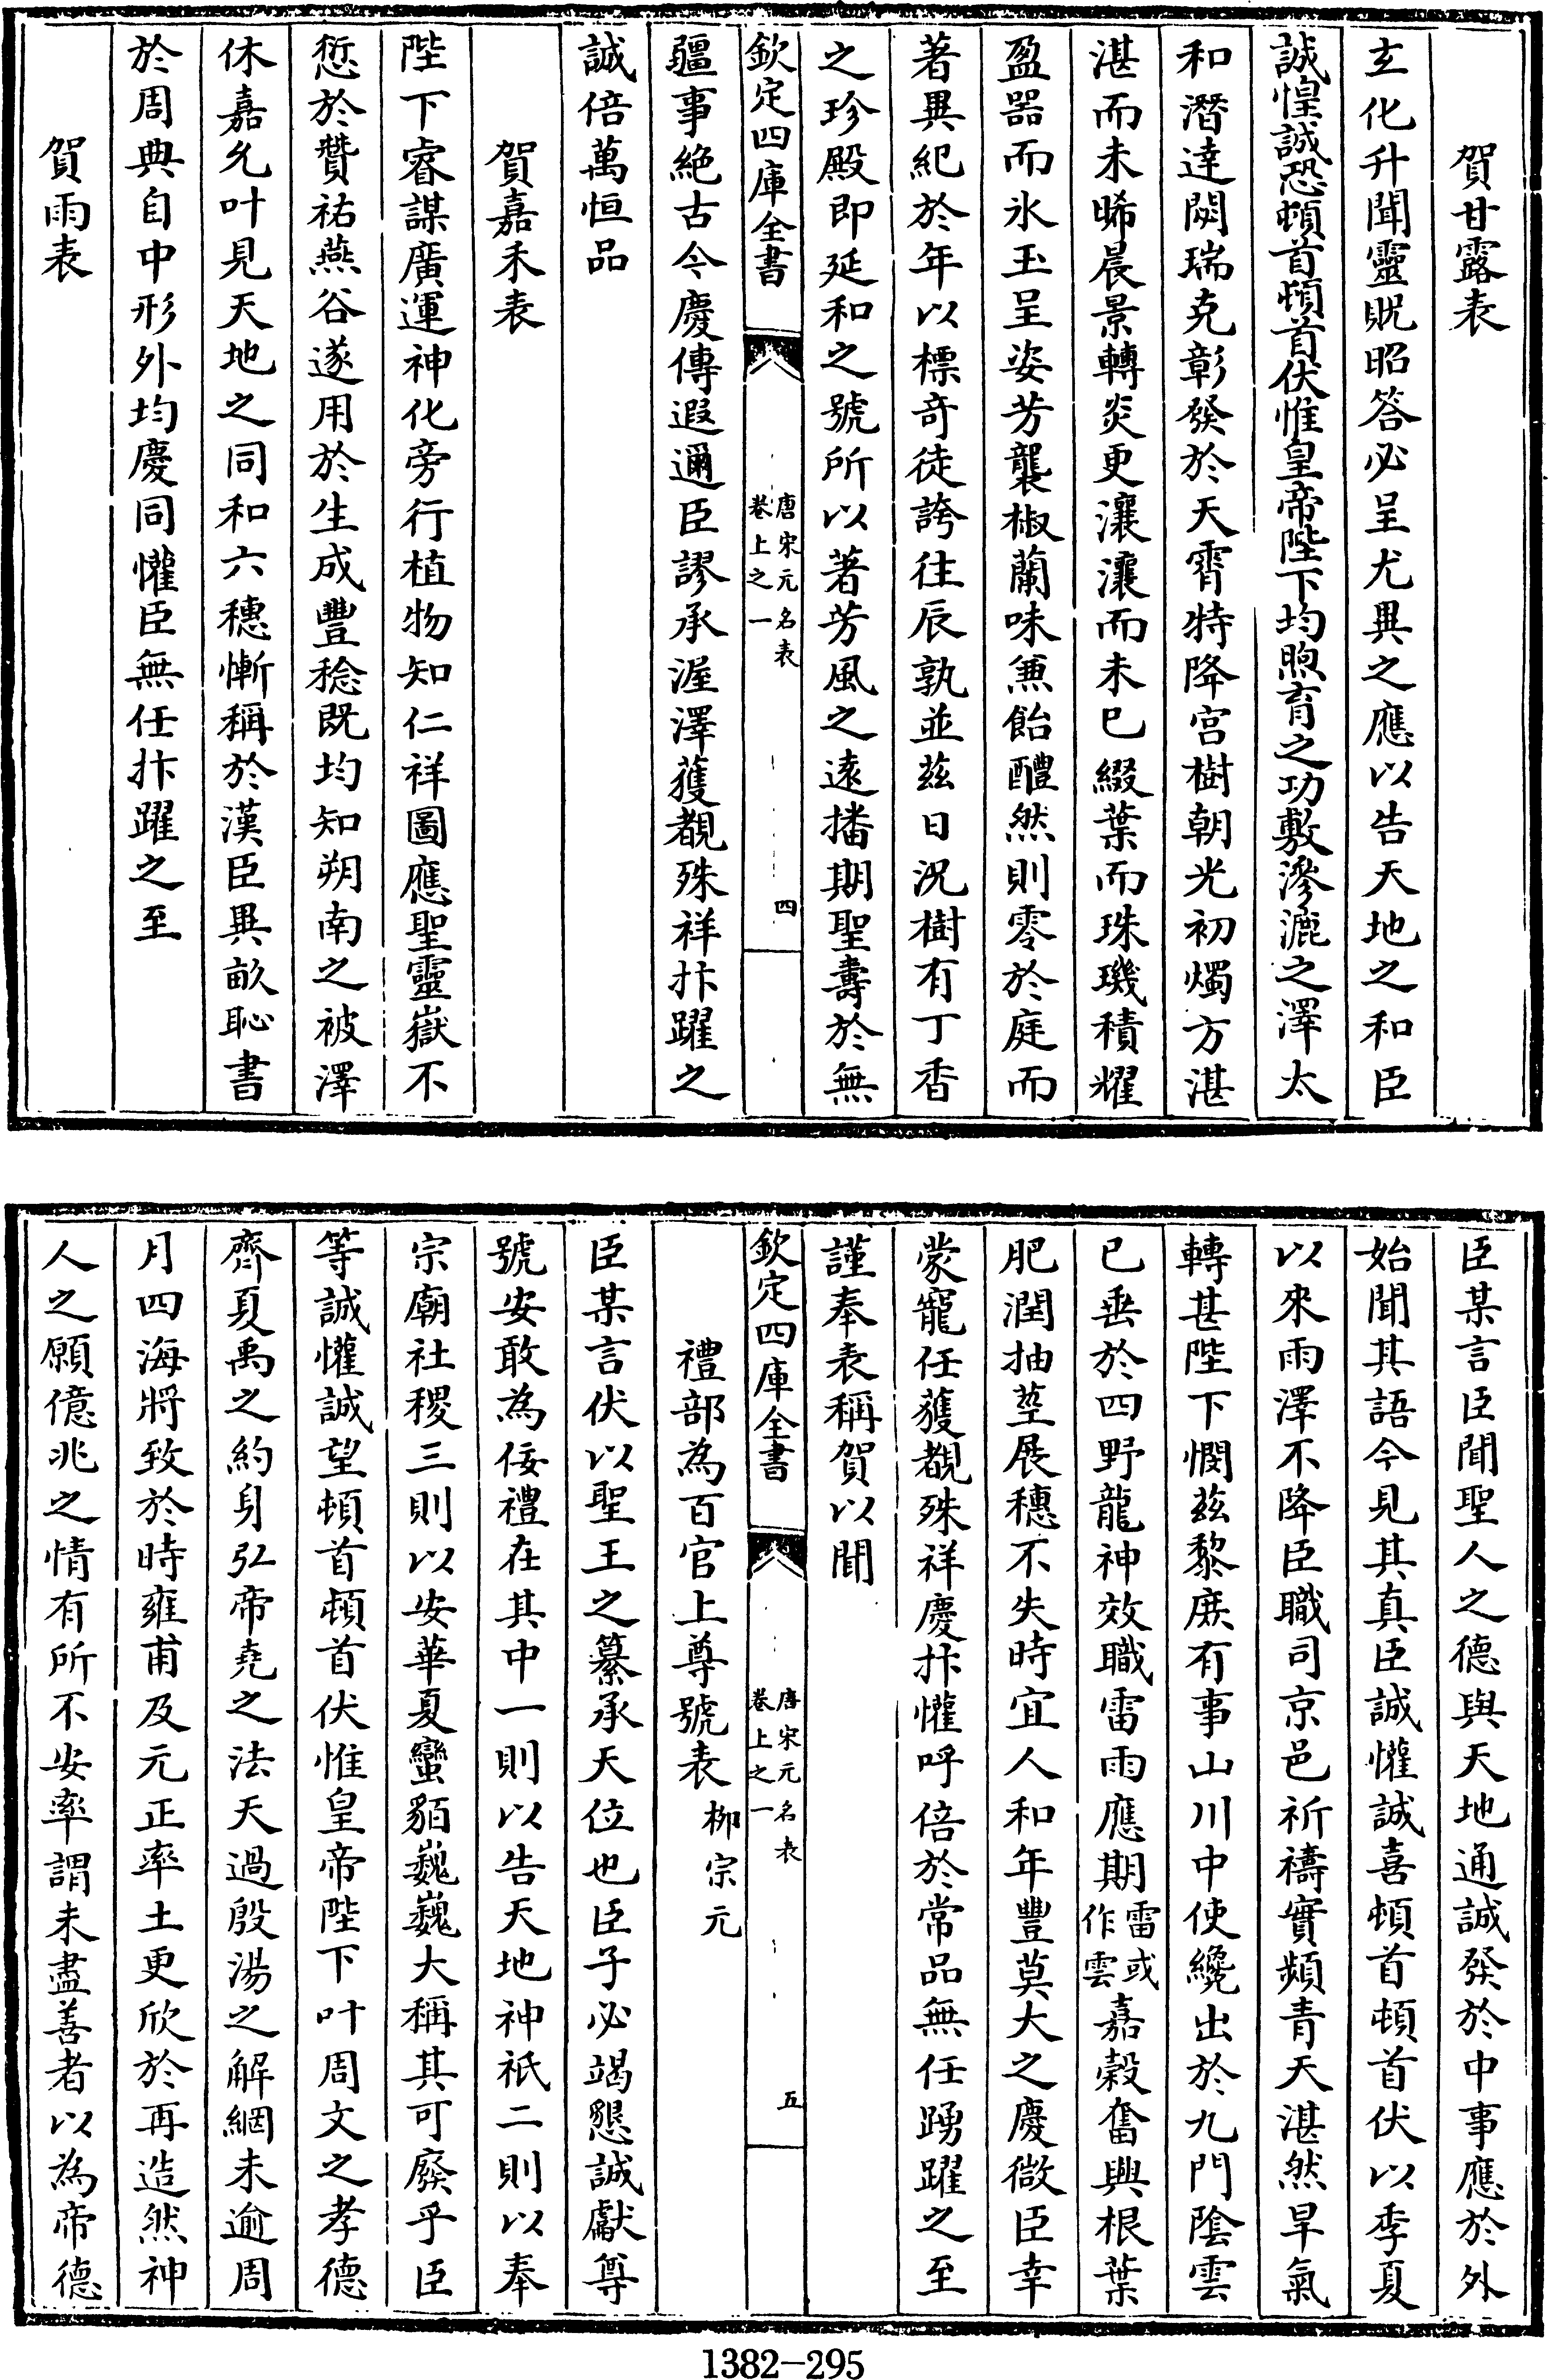 賀甘露表
玄化升聞靈貺昭答必呈尤異之應以告天地之和臣
誠惶誠恐頓首頓首伏惟皇帝陛下均煦育之功敷滲漉之澤太
和潛達闕瑞克彰發於天霄特降宫樹朝光初燭方湛
湛而未晞晨景轉炎更瀼瀼而未已綴葉而珠璣積耀
盈器而氷玉呈姿芳襲椒蘭味兼飴醴然則零於庭而
著異紀於年以標奇徒誇往辰孰並兹日況樹有丁香
之珍殿即延和之號所以著芳風之遠播期聖壽於無
欽定四庫全書
唐宋元名表
卷上之一
四
疆事絶古今慶傳遐邇臣謬承渥澤獲覩殊祥抃躍之
誠倍萬恒品
賀嘉禾表
陛下睿謀廣運神化旁行植物知仁祥圖應聖靈嶽不
愆於贊祐燕谷遂用於生成豐稔既均知朔南之被澤
休嘉允叶見天地之同和六穗慚稱於漢臣異畝恥書
於周典自中形外均慶同懽臣無任抃躍之至
賀雨表
臣某言臣聞聖人之德與天地通誠發於中事應於外
始聞其語今見其真臣誠懽誠喜頓首頓首伏以季夏
以來雨澤不降臣職司京邑祈禱實頻青天湛然旱氣
轉甚陛下憫兹黎庶有事山川中使纔出於九門陰雲
已垂於四野龍神效職雷雨應期雷或作雲嘉穀奮興根葉
肥潤抽莖展穗不失時宜人和年豐莫大之慶微臣幸
蒙寵任獲覩殊祥慶抃懽呼倍於常品無任踴躍之至
謹奉表稱賀以聞
欽定四庫全書
唐宋元名表
卷上之一
五
禮部為百官上尊號表 柳宗元
臣某言伏以聖王之纂承天位也臣子必竭懇誠獻尊
號安敢為佞禮在其中一則以告天地神祇二則以奉
宗廟社稷三則以安華夏蠻貊巍巍大稱其可廢乎臣
等誠懽誠望頓首頓首伏惟皇帝陛下叶周文之孝德
齊夏禹之約身弘帝堯之法天過殷湯之解網未逾周
月四海將致於時雍甫及元正率土更欣於再造然神
人之願億兆之情有所不安率謂未盡善者以為帝德
1382-295